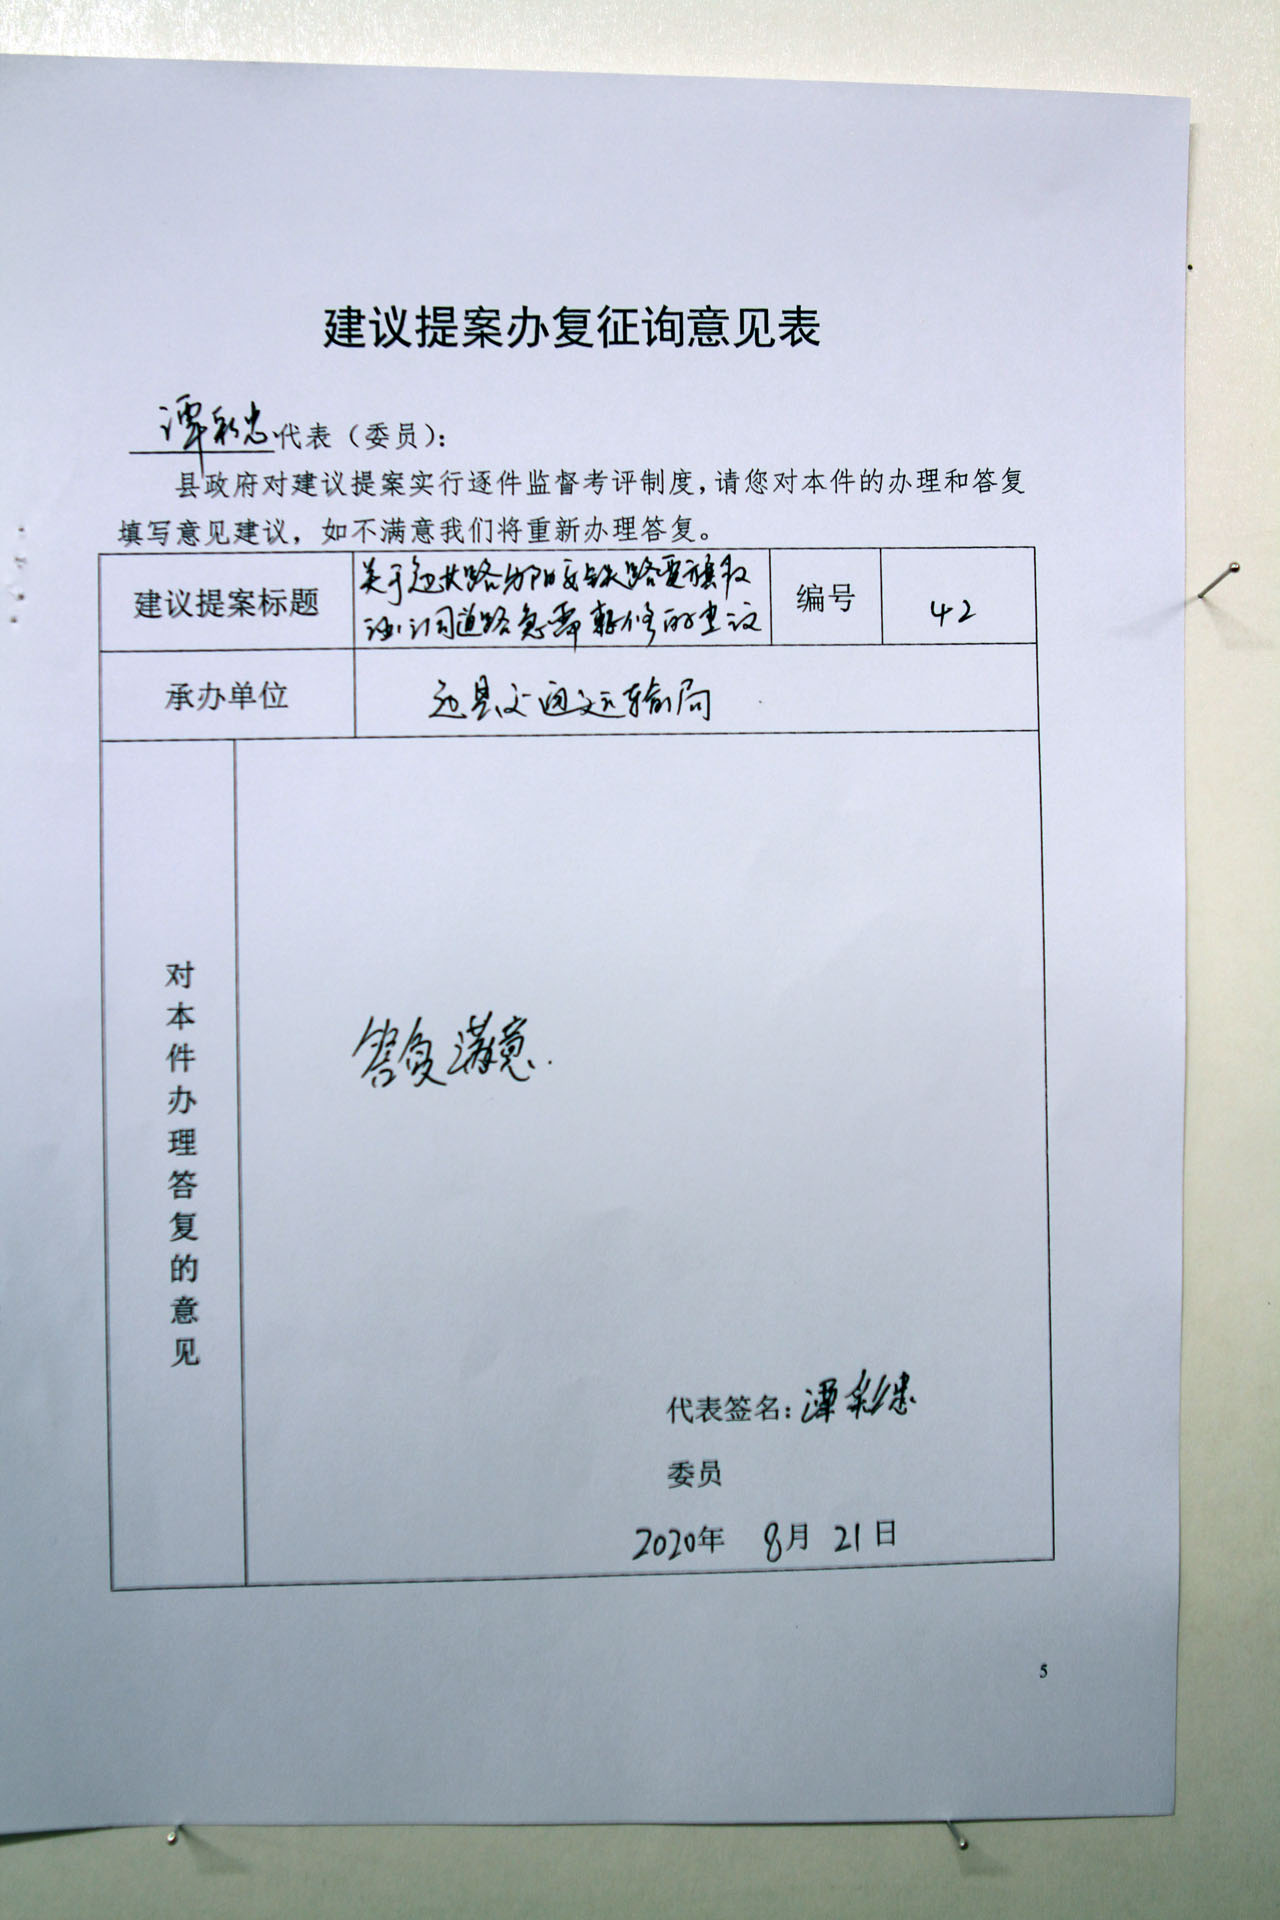 建议提案办复征询意见表
谭彩忠代表（委员）：
县政府对建议提案实行逐件监督考评制度，请您对本件的办理和答复
填写意见建议，如不满意我们将重新办理答复。
建议提案标题
关于 路 路
道路急需 修的建议
编号
42
承办单位
县交通运输局
对本件办理答复的意见
答复满意.
代表签名：谭彩忠
委员
2020年 8月 21日
5